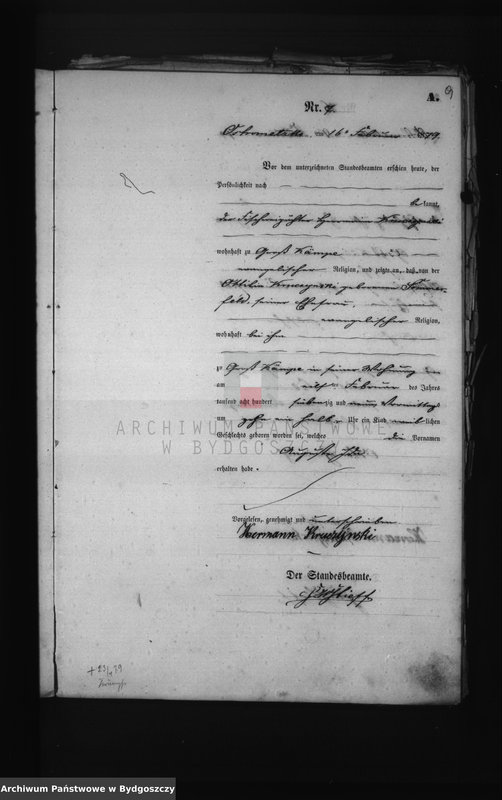 A.
9
Nr. 9.
Ostrometzko, am 16ten Februar 1879.
Vor dem unterzeichneten Standesbeamten erschien heute, der
Persönlichkeit nach
bekannt,
der Fischereipächter Hermann
wohnhaft zu Groß Kämpe
evangelischer Religion, und zeigte an, daß von der
geborenen
seiner Ehefrau,
evangelischer Religion,
wohnhaft bei ihm
zu Groß Kämpe in seiner Wohnung
am elften Februar des Jahres
tausend acht hundert siebenzig und neun Vormittags
um zehn ein halb Uhr ein Kind weiblichen
Geschlechts geboren worden sei, welches die Vornamen
Auguste Ida
erhalten habe.
Vorgelesen, genehmigt und unterschrieben
Hermann Kruszynski
Der Standesbeamte.
ARCHIWUM PAŃSTWOWE
W BYDGOSZCZY
Archiwum Państwowe w Bydgoszczy